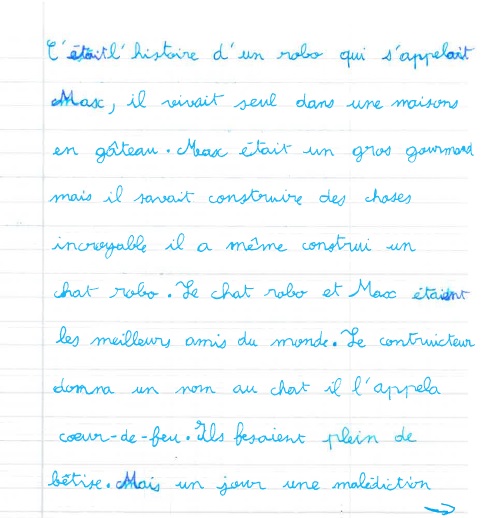 C'étaitl'histoire d'un robo qui s'appelait
Max, il vivait seul dans une maisons
en gâteau. Max était un gros gourmand
mais il savait construire des choses
incroyable il a même construi un
chat robo. Le chat robo et Max étaient
les meilleurs amis du monde. Le contructeur
donna un nom au chat il l'appela
coeur-de-feu. Ils fesaient plein de
bêtise. Mais un jour une malédiction
→